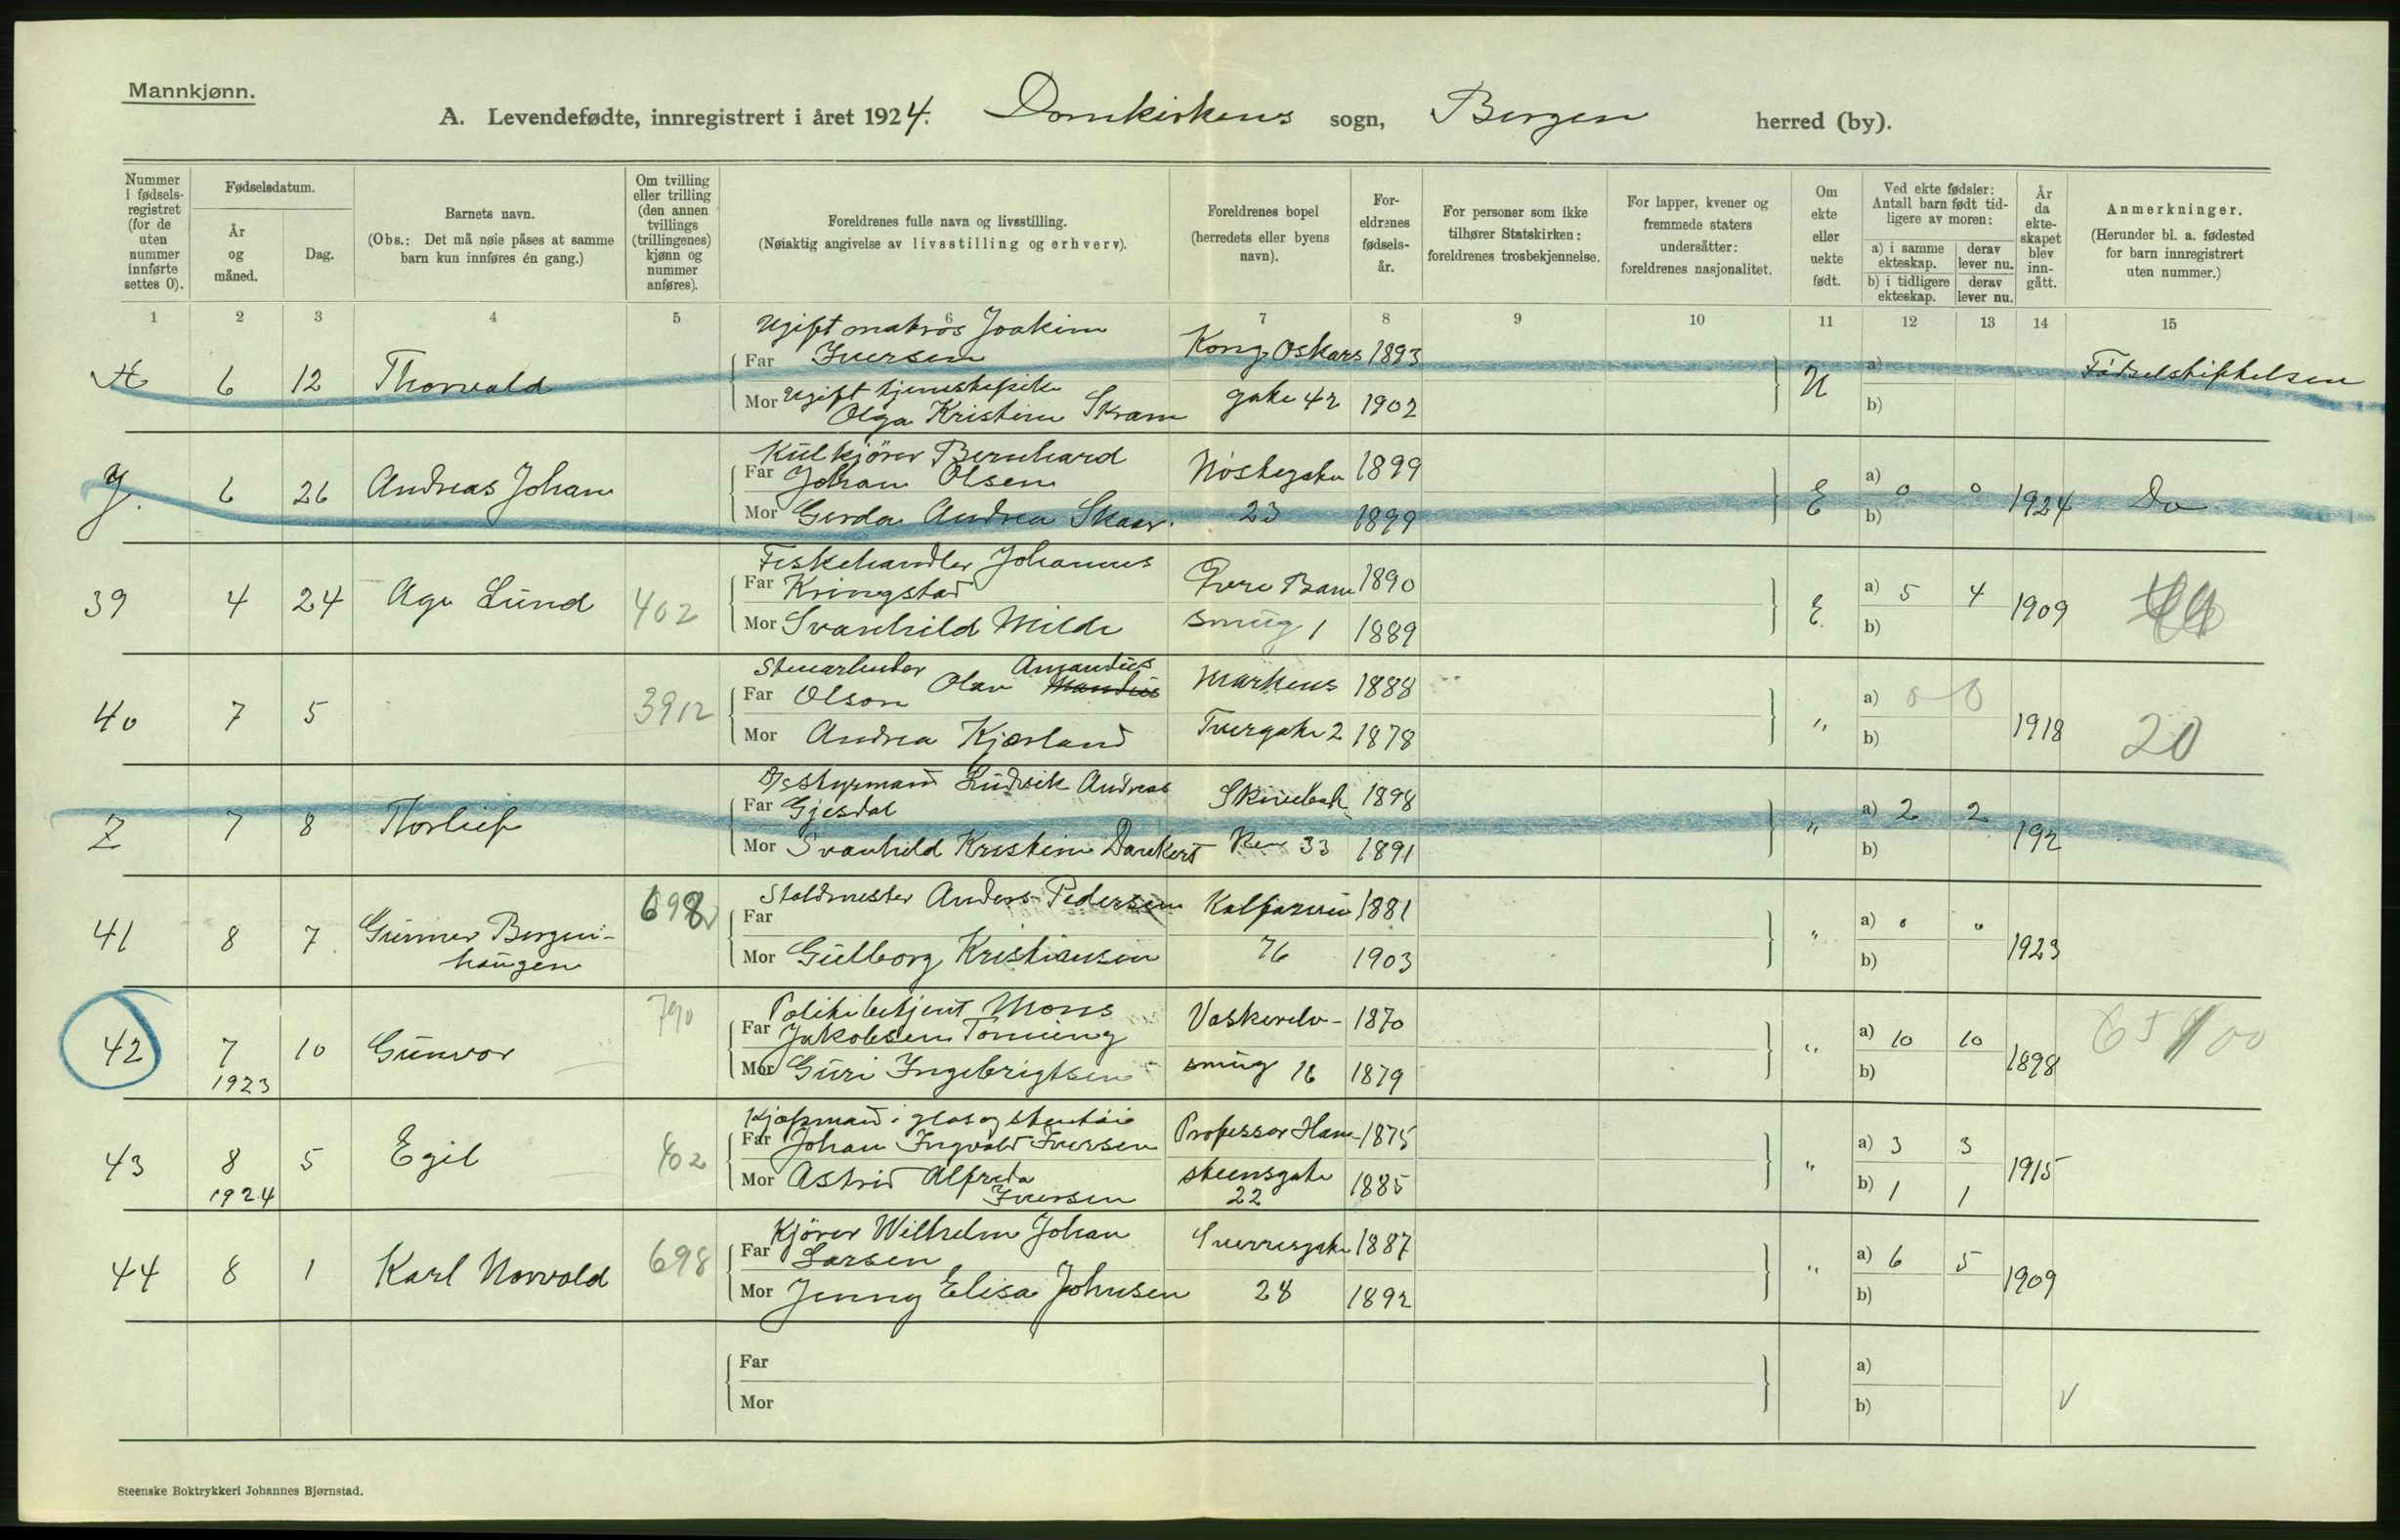 Mannkjønn.
A. Levendefødte, innregistrert i året 1924. Domkirkens sogn, Bergen herred (by).
Nummer i fødsels-registret (for de uten nummer innførte settes 0).
Fødselsdatum.
År og måned.
Dag.
Barnets navn.
(Obs.: Det må nøie påses at samme barn kun innføres én gang.)
Om tvilling eller trilling (den annen tvillings (trillingenes) kjønn og nummer anføres).
Foreldrenes fulle navn og livsstilling.
(Nøiaktig angivelse av livsstilling og erhverv).
Foreldrenes bopel (herredets eller byens navn).
For-eldrenes fødsels-år.
For personer som ikke tilhører Statskirken: foreldrenes trosbekjennelse.
For lapper, kvener og fremmede staters undersåtter: foreldrenes nasjonalitet.
Om ekte eller uekte født.
Ved ekte fødsler: Antall barn født tid-ligere av moren:
a) i samme ekteskap. derav lever nu.
b) i tidligere ekteskap. derav lever nu.
År da ekte-skapet blev inn-gått.
Anmerkninger.
(Herunder bl. a. fødested for barn innregistrert uten nummer.)
1 2 3 4 5 6 7 8 9 10 11 12 13 14 15
Ugift matros Joakim
6 12 Thorvald Far Iversen Kong Oskars 1893 U a) Fødselstiftelsen
Mor Ugift tjenestepike
Olga Kristine Skram gate 42 1902 b)
Kulkjører Bernhard
6 26 Andreas Johan Far Johan Olsen Nøstegaten 1899 E a) 0 0 1924 Do
Mor Gerda Andrea Skaar. 23 1899 b)
Fiskehandler Johannes
39 4 24 Age Lund 402 Far Kringstad Øvre Bane 1890 E. a) 5 4 1909
Mor Svanhild Milde smug 1 1889 b)
Stuearbeider Amandus
40 7 5 3912 Far Olson Olav Mandius Markens 1888 " a) 0 0 1918 20
Mor Andrea Kjærland Tvergate 2 1878 b)
D/S styrmand Ludvik Andreas
Z 7 8 Thorleif Far Gjesdal 1898 " a) 2 2 192
Mor Svanhild Kristine Dankert 33 1891 b)
Staldmester Anders Pedersen
41 8 7 Gunnar Bergen-haugen 698 Far Kalfarvei 1881 " a) 0 0 1923
Mor Gulborg Kristiansen 76 1903 b)
Politibetjent Mons
42 7 10 Gunvor 790 Far Jakobsen Tonning Vaskerelv- 1870 " a) 10 10 1898
1923 Mor Guri Ingebrigtsen smug 16 1879 b)
Kjøpmand i glas og stentøi
43 8 5 Egil 402 Far Johan Ingvald Iversen Professor Han- 1875 " a) 3 3 1915
1924 Mor Astrid Alfreda Iversen steensgate 22 1885 b) 1 1
Kjører Wilhelm Johan
44 8 1 Karl Norvald 698 Far Larsen Sverresgate 1887 " a) 6 5 1909
Mor Jenny Elisa Johnsen 28 1892 b)
Far a)
Mor b)
Steenske Boktrykkeri Johannes Bjørnstad.